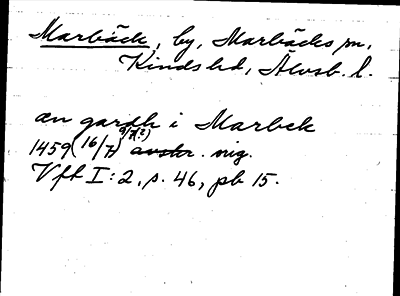 Marbäck, by, Marbäcks sn,
Kinds hd, Älvsb. l.
en gardh i Marbek
1459 (16/7) avskr. orig.
Vfb I:2, s. 46, pb 15.